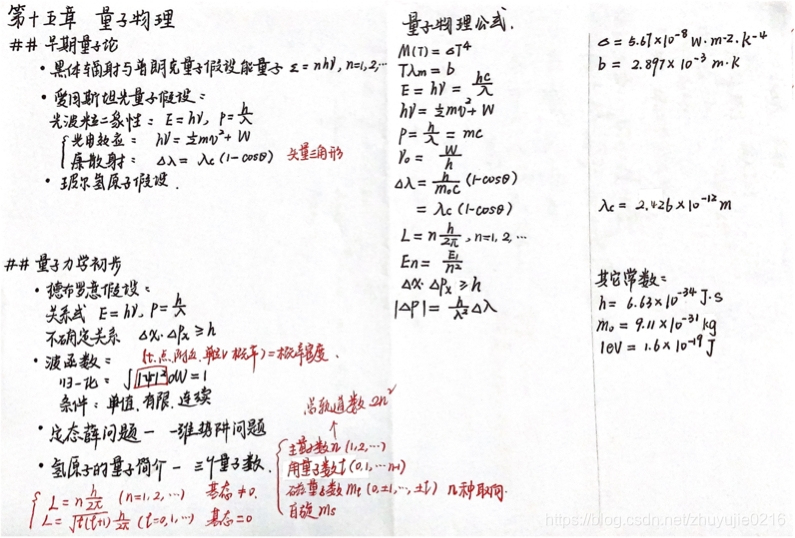 第十五章 量子物理
## 早期量子论
• 黑体辐射与普朗克量子假设能量子 ε = nhν, n=1,2,…
• 爱因斯坦光量子假设:
光波粒二象性: E=hν, P=h/λ
光电效应: hν=½mv²+W
康散射: Δλ = λc(1-cosθ) 矢量三角形
• 玻尔氢原子假设.
## 量子力学初步
• 德布罗意假设:
关系式 E=hν, P=h/λ
不确定关系 Δx·Δpx ≥ h
• 波函数: (t, 点附近, 单位V概率)=概率密度.
归一化: ∫|Ψ|²dW=1
条件: 单值,有限,连续
• 定态薛问题 — 一维势阱问题
总轨道数2n²
• 氢原子的量子简介 — 三个量子数.
主量子数n (1,2,…)
角量子数l (0,1,…n-1)
磁量子数ml (0,±1,…,±l) n种取向.
自旋ms
L = n h/2π (n=1,2,…) 基态≠0.
L = √l(l+1) h/2π (l=0,1,…) 基态=0
量子物理公式.
M(T) = σT⁴
Tλm = b
E = hν = hc/λ
hν = ½mv²+W
P = h/λ = mc
ν₀ = W/h
Δλ = h/m₀c (1-cosθ)
= λc(1-cosθ)
L = n h/2π, n=1,2,…
En = E₁/n²
Δx·Δpx ≥ h
|ΔP| = h/λ² Δλ
σ = 5.67×10⁻⁸ W·m-2·k-4
b = 2.897×10⁻³ m·k
λc = 2.426×10⁻¹² m
其它常数:
h = 6.63×10⁻³⁴ J·s
m₀ = 9.11×10⁻³¹ kg
1eV = 1.6×10⁻¹⁹ J
https://blog.csdn.net/zhuyujie0216